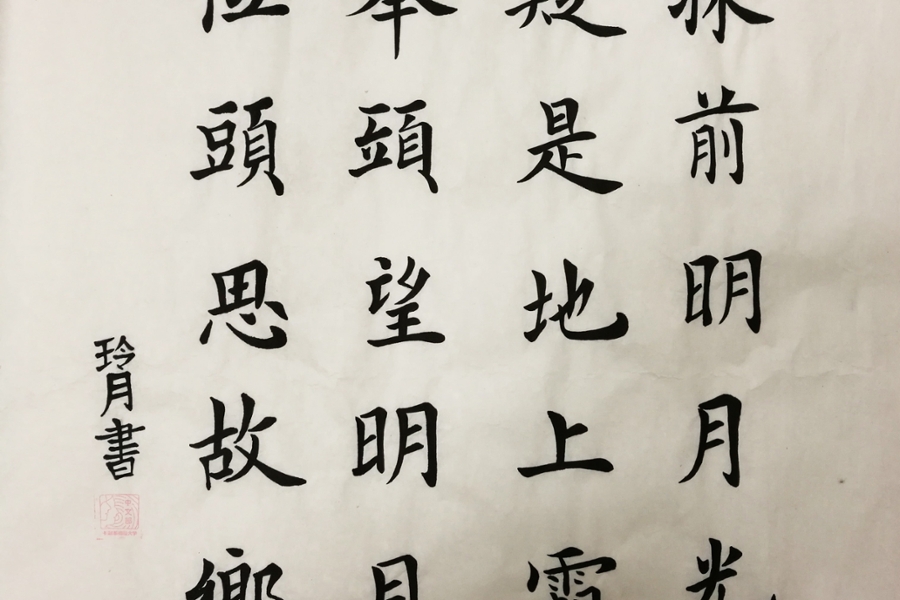 牀前明月光
疑是地上霜
舉頭望明月
低頭思故鄉
玲月書